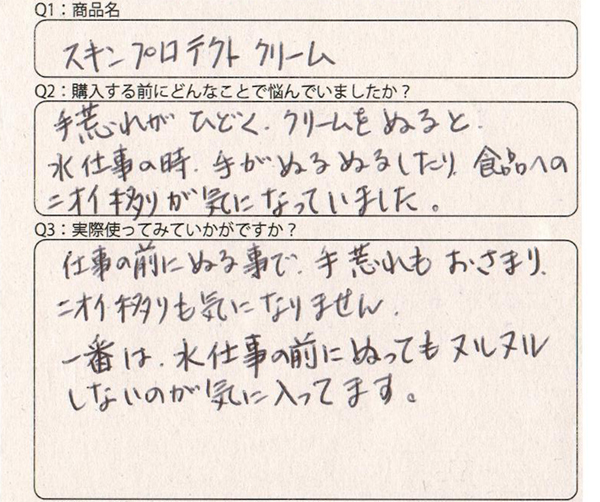 Q1：商品名
スキンプロテクトクリーム
Q2：購入する前にどんなことで悩んでいましたか？
手荒れがひどく、クリームをぬると、
水仕事の時、手がぬるぬるしたり、食品への
ニオイ移りが気になっていました。
Q3：実際使ってみていかがですか？
仕事の前にぬる事で、手荒れもおさまり、
ニオイ移りも気になりません。
一番は、水仕事の前にぬってもヌルヌル
しないのが気に入ってます。